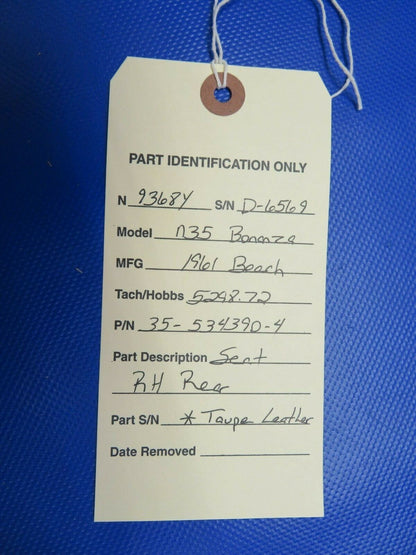 PART IDENTIFICATION ONLY
N 9368Y S/N D-6569
Model N35 Bonanza
MFG 1961 Beech
Tach/Hobbs 5298.72
P/N 35-534390-4
Part Description Seat
RH Rear
Part S/N * Taupe Leather
Date Removed